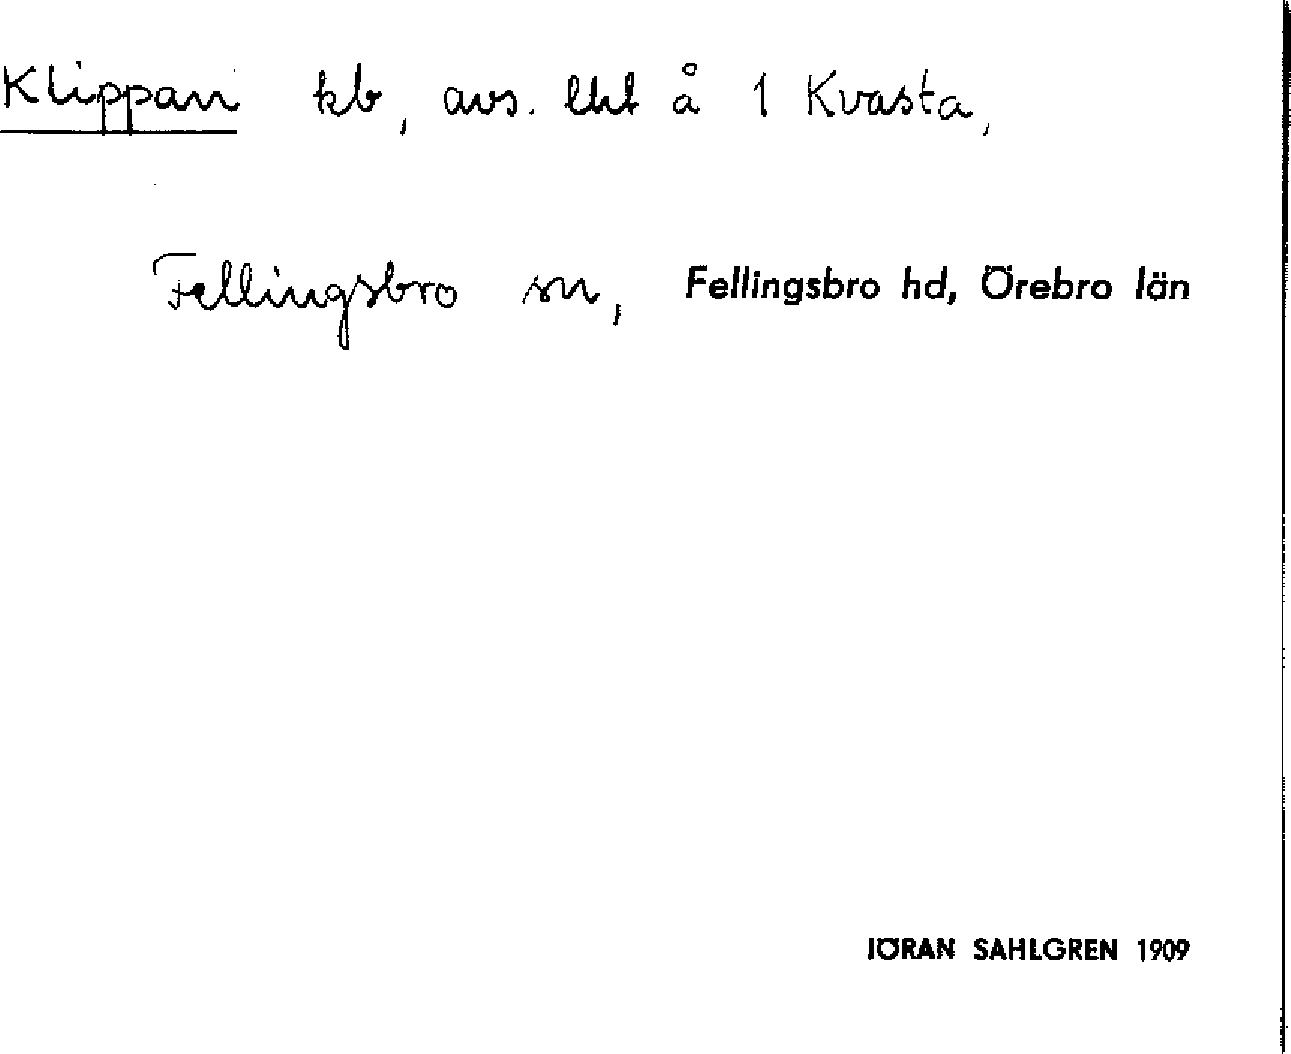 Klippan kb, avs. lht å 1 Kvasta,
Fellingsbro sn, Fellingsbro hd, Örebro län
JÖRAN SAHLGREN 1909